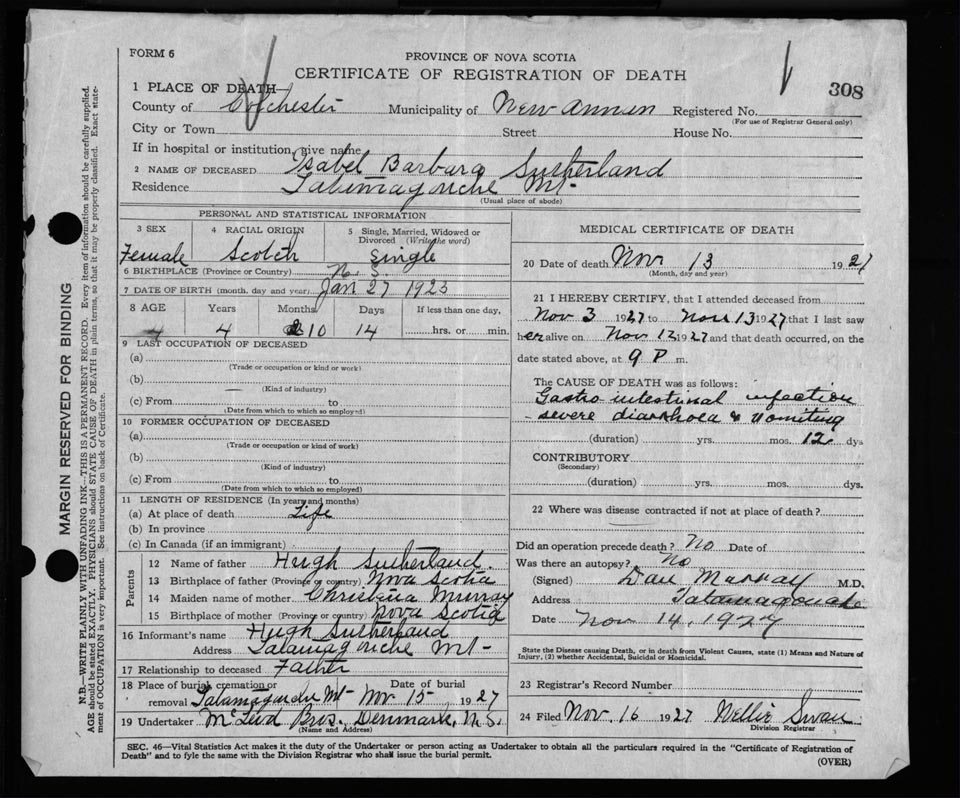 FORM 6
PROVINCE OF NOVA SCOTIA
CERTIFICATE OF REGISTRATION OF DEATH
308
1 PLACE OF DEATH—
County of Colchester Municipality of New Annan Registered No.
(For use of Registrar General only)
City or Town Street House No.
If in hospital or institution, give name
2 NAME OF DECEASED Isabel Barbara Sutherland
Residence Tatamagouche Mt-
(Usual place of abode)
PERSONAL AND STATISTICAL INFORMATION
3 SEX 4 RACIAL ORIGIN 5 Single, Married, Widowed or Divorced (Write the word)
Female Scotch Single
6 BIRTHPLACE (Province or Country) N. S.
7 DATE OF BIRTH (month, day and year) Jan 27 1923
8 AGE Years Months Days If less than one day,
4 4 10 14 hrs. or min.
9 LAST OCCUPATION OF DECEASED
(a)
(Trade or occupation or kind or work)
(b) —
(Kind of industry)
(c) From to
(Date from which to which so employed)
10 FORMER OCCUPATION OF DECEASED
(a)
(Trade or occupation or kind of work)
(b)
(Kind of industry)
(c) From to
(Date from which to which so employed)
11 LENGTH OF RESIDENCE (In years and months)
(a) At place of death Life
(b) In province
(c) In Canada (if an immigrant)
Parents
12 Name of father Hugh Sutherland.
13 Birthplace of father (Province or country) Nova Scotia
14 Maiden name of mother Christena Murray
15 Birthplace of mother (Province or Country) Nova Scotia
16 Informant's name Hugh Sutherland
Address Tatamagouche Mt-
17 Relationship to deceased Father
18 Place of burial, cremation or removal Tatamagouche Mt- Date of burial Nov 15 1927
19 Undertaker McLeod Bros. Denmark, N.S.
(Name and Address)
MEDICAL CERTIFICATE OF DEATH
20 Date of death Nov 13 1927
(Month, day and year)
21 I HEREBY CERTIFY, that I attended deceased from
Nov 3 1927 to Nov 13 1927 that I last saw
her alive on Nov 12 1927 and that death occurred, on the
date stated above, at 9 P m.
The CAUSE OF DEATH was as follows:
Gastro intestinal infection
- severe diarrhoea & vomiting
(duration) yrs. mos. 12 dys
CONTRIBUTORY
(Secondary)
(duration) yrs. mos. dys.
22 Where was disease contracted if not at place of death?
Did an operation precede death? No Date of
Was there an autopsy? No
(Signed) Dan Murray M.D.
Address Tatamagouche
Date Nov 14, 1927
State the Disease causing Death, or in death from Violent Causes, state (1) Means and Nature of
Injury, (2) whether Accidental, Suicidal or Homicidal.
23 Registrar's Record Number
24 Filed Nov. 16 1927 Nellie Swan
Division Registrar
SEC. 46—Vital Statistics Act makes it the duty of the Undertaker or person acting as Undertaker to obtain all the particulars required in the "Certificate of Registration of
Death" and to fyle the same with the Division Registrar who shall issue the burial permit.
(OVER)
MARGIN RESERVED FOR BINDING
N.B.—WRITE PLAINLY WITH UNFADING INK—THIS IS A PERMANENT RECORD. Every item of information should be carefully supplied.
AGE should be stated EXACTLY. PHYSICIANS should STATE CAUSE OF DEATH in plain terms, so that it may be properly classified. Exact state-
ment of OCCUPATION is very important. See instructions on back of Certificate.